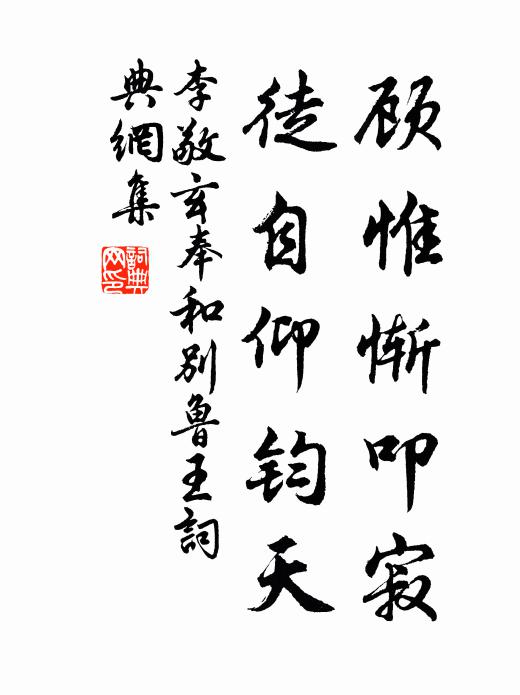 顾惟惭叩寂
徒自仰钧天
李敬玄奉和别鲁王詞
典網集
詞典
网印